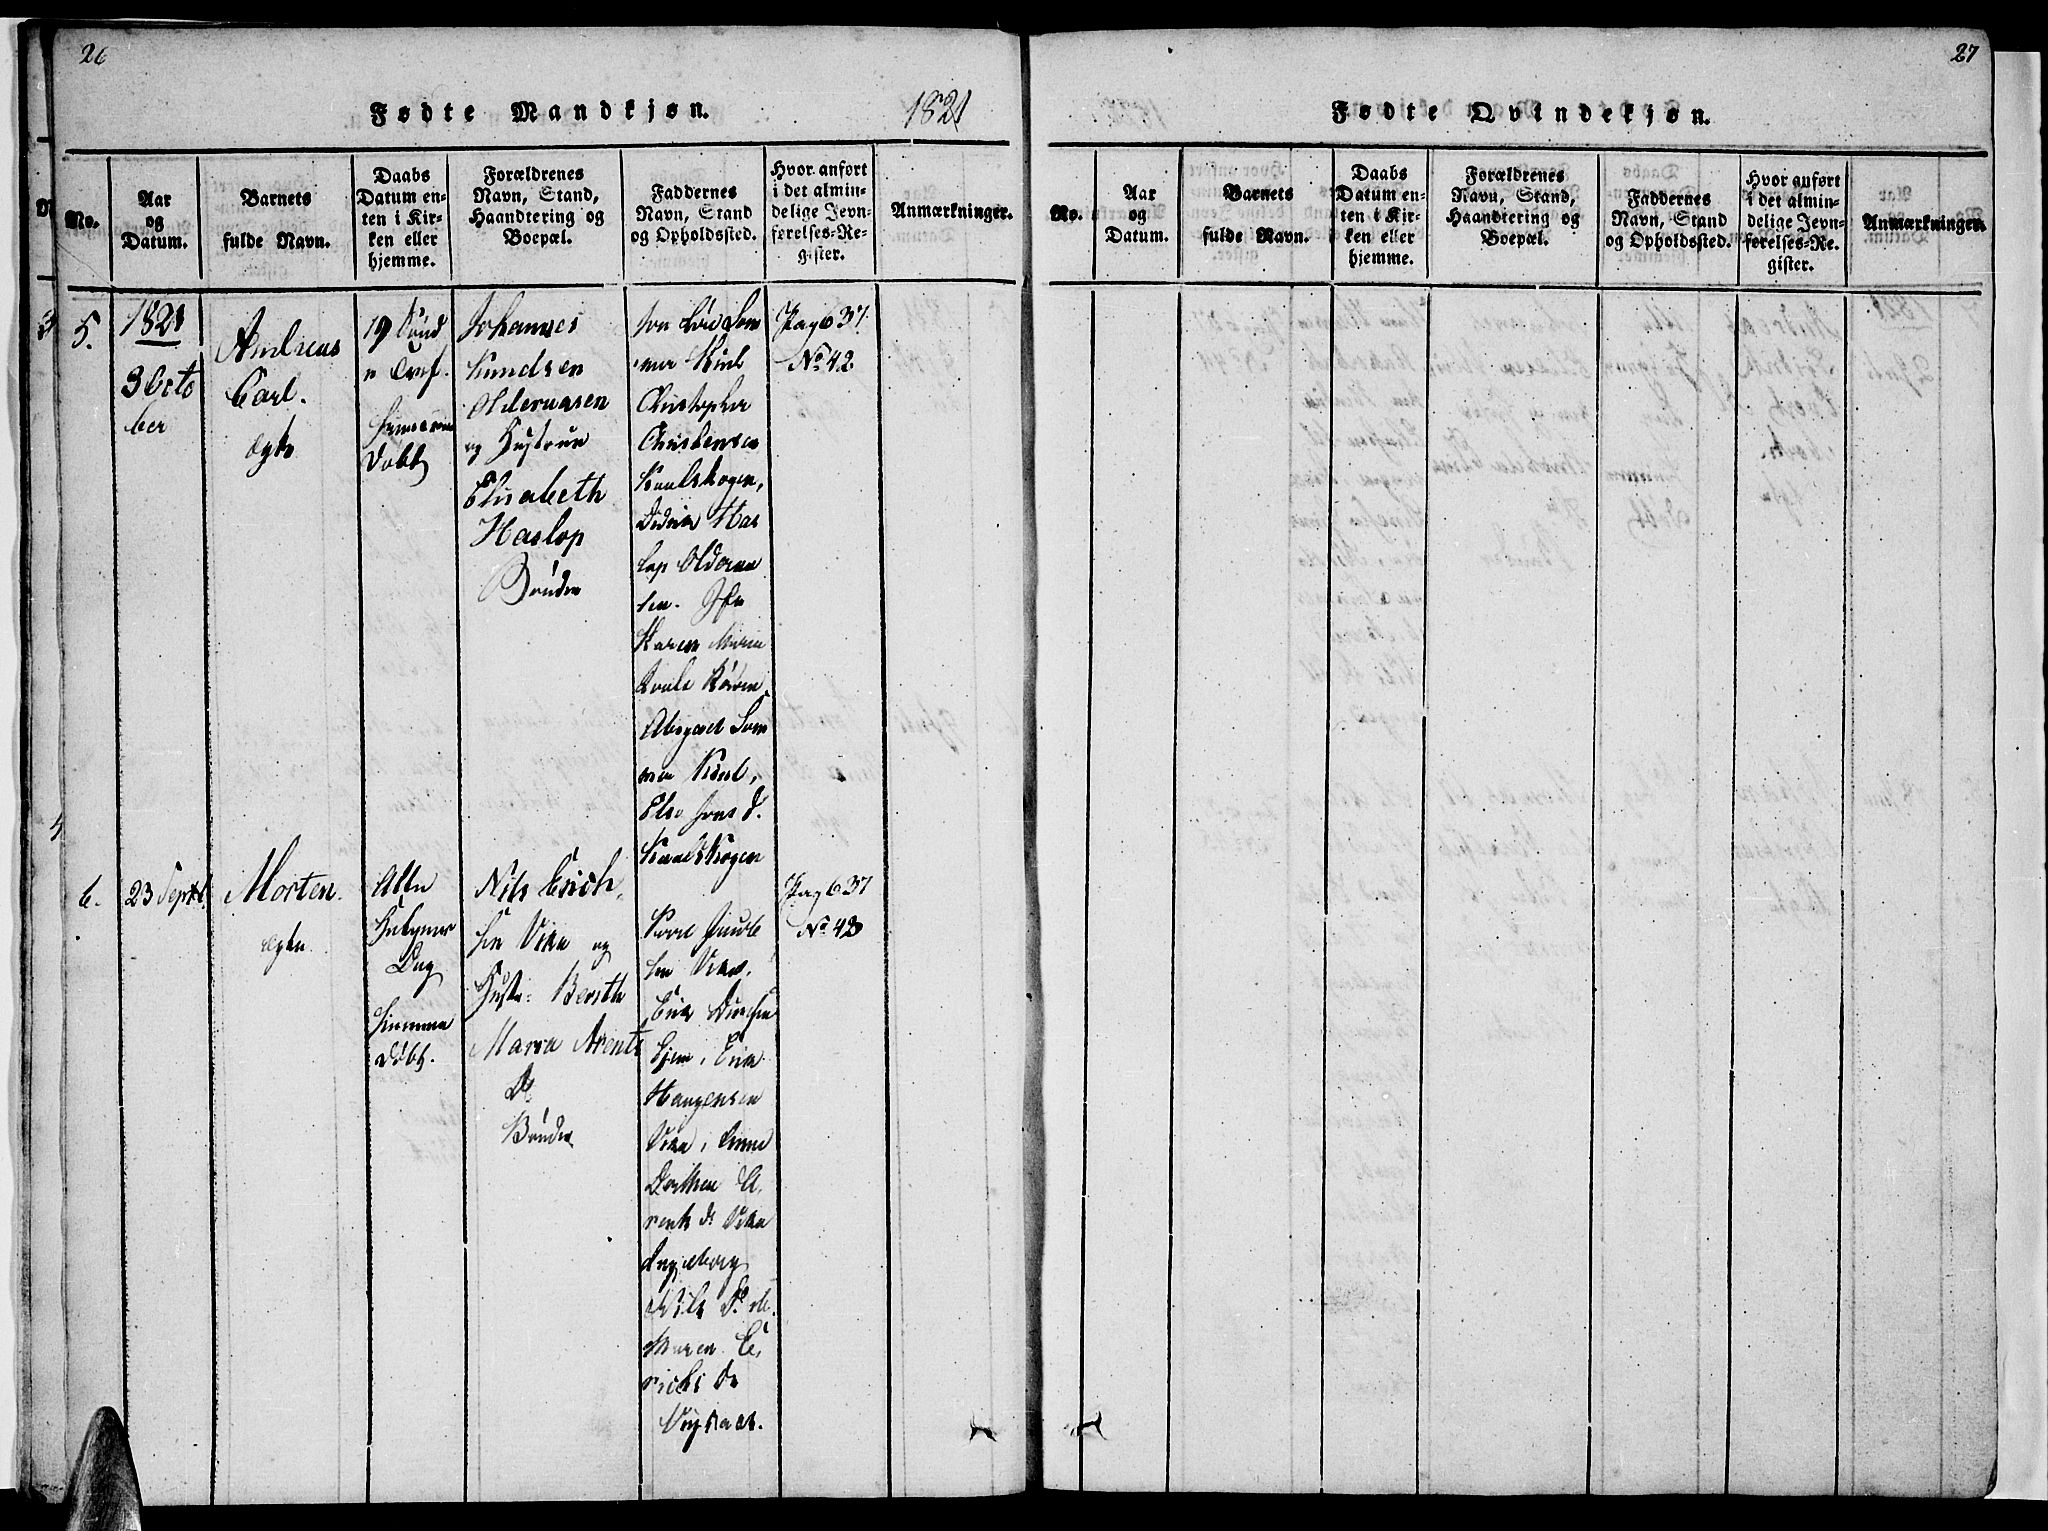 26
Fødte Mandkjøn.
1821
No.
Aar
og
Datum.
Barnets
fulde Navn.
Daabs
Datum en-
ten i Kir-
ken eller
hjemme.
Forældrenes
Navn, Stand,
Haandtering og
Boepæl.
Faddernes
Navn, Stand
og Opholdssted.
Hvor anført
i det almin-
delige Jevn-
førelses-Re-
gister.
Anmærkninger.
5.
1821
3 Octo
ber
Andreas
Carl.
ægte
19 Sønd
Tref.
hjemme
døbt
Johannes
Knudsen
Oldernæsen
og Hustrue
Elisabeth
Haslop
Bønder
Christopher
Christensen
Kaalskogen,
Didrik Has
lop Oldernæ
sen.
Karen Maria
Abigael
Else Jons d.
Kaalskogen
Pag 637
No. 42
6.
23 Septbr.
Morten.
ægte
Alle
Helgens
Dag
hjemme
døbt.
Nils Erich
sen Vika og
Hustr: Berith
Maria Arents
D.
Bønder
Vika.
Erik
Hangensen
Vika, Anne
Dorthea A.
rents d. Vika
Ingeborg
Nils D.
Maren E.
richs D.
Pag 637
No. 43
27
Fødte Qvindekjøn.
No.
Aar
og
Datum.
Barnets
fulde Navn.
Daabs
Datum en-
ten i Kir-
ken eller
hjemme.
Forældrenes
Navn, Stand,
Haandtering og
Boepæl.
Faddernes
Navn, Stand
og Opholdssted.
Hvor anført
i det almin-
delige Jevn-
førelses-Re-
gister.
Anmærkninger.